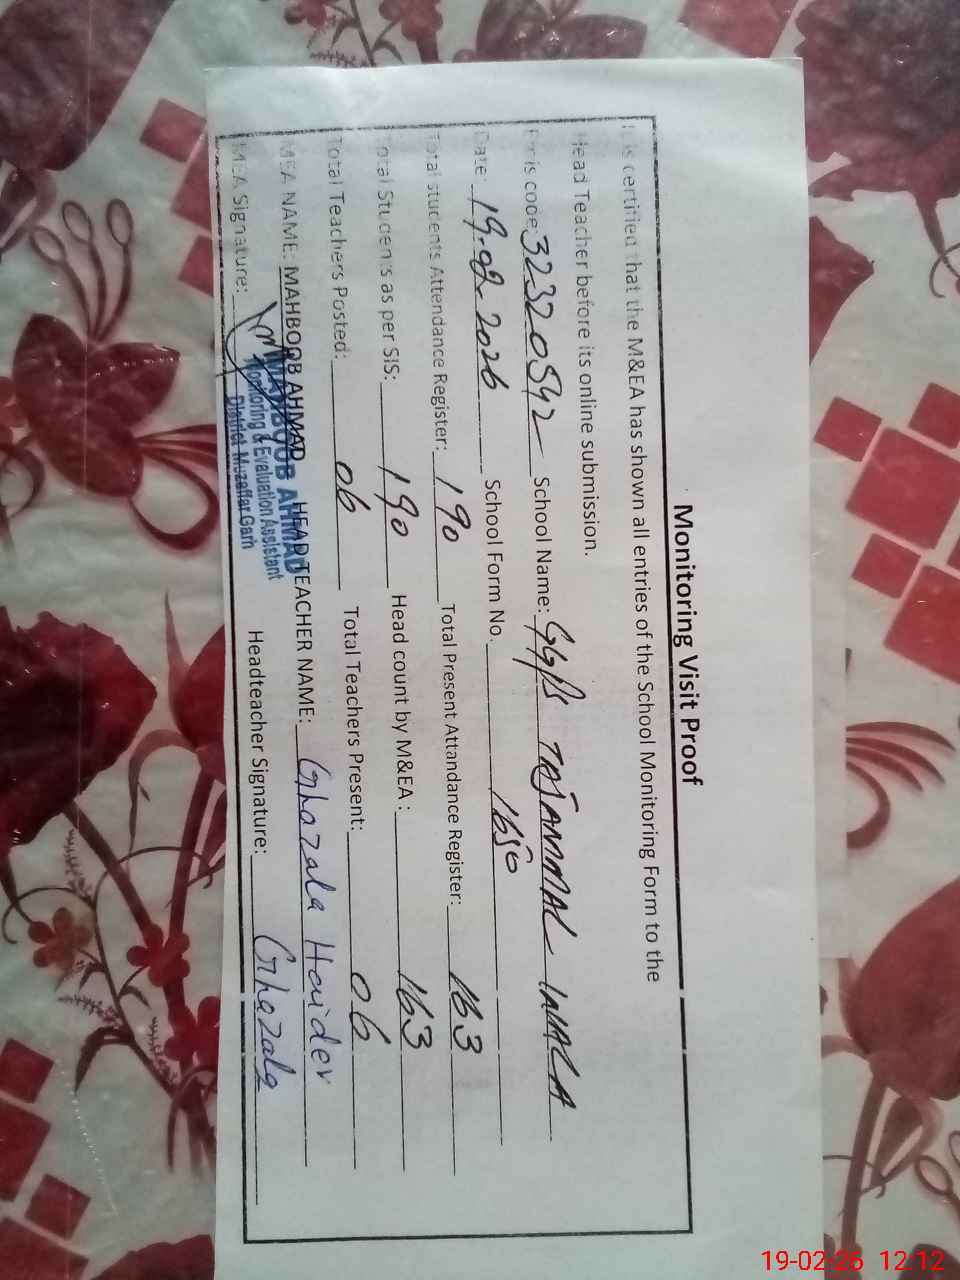 Monitoring Visit Proof
It is certified that the M&EA has shown all entries of the School Monitoring Form to the
Head Teacher before its online submission.
Emis code: 32320542 School Name: GGPS TAJAMMAL WALA
Date: 19-02-2026 School Form No. 1650
Total students Attendance Register: 190 Total Present Attandance Register: 163
Total Students as per SIS: 190 Head count by M&EA: 163
Total Teachers Posted: 06 Total Teachers Present: 06
MEA NAME: MAHBOOB AHMAD HEAD TEACHER NAME: Ghazala Haider
MEA Signature: Headteacher Signature: Ghazala
MAHBOOB AHMAD
Monitoring & Evaluation Assistant
District Muzaffar Garh
19-02-26 12:12